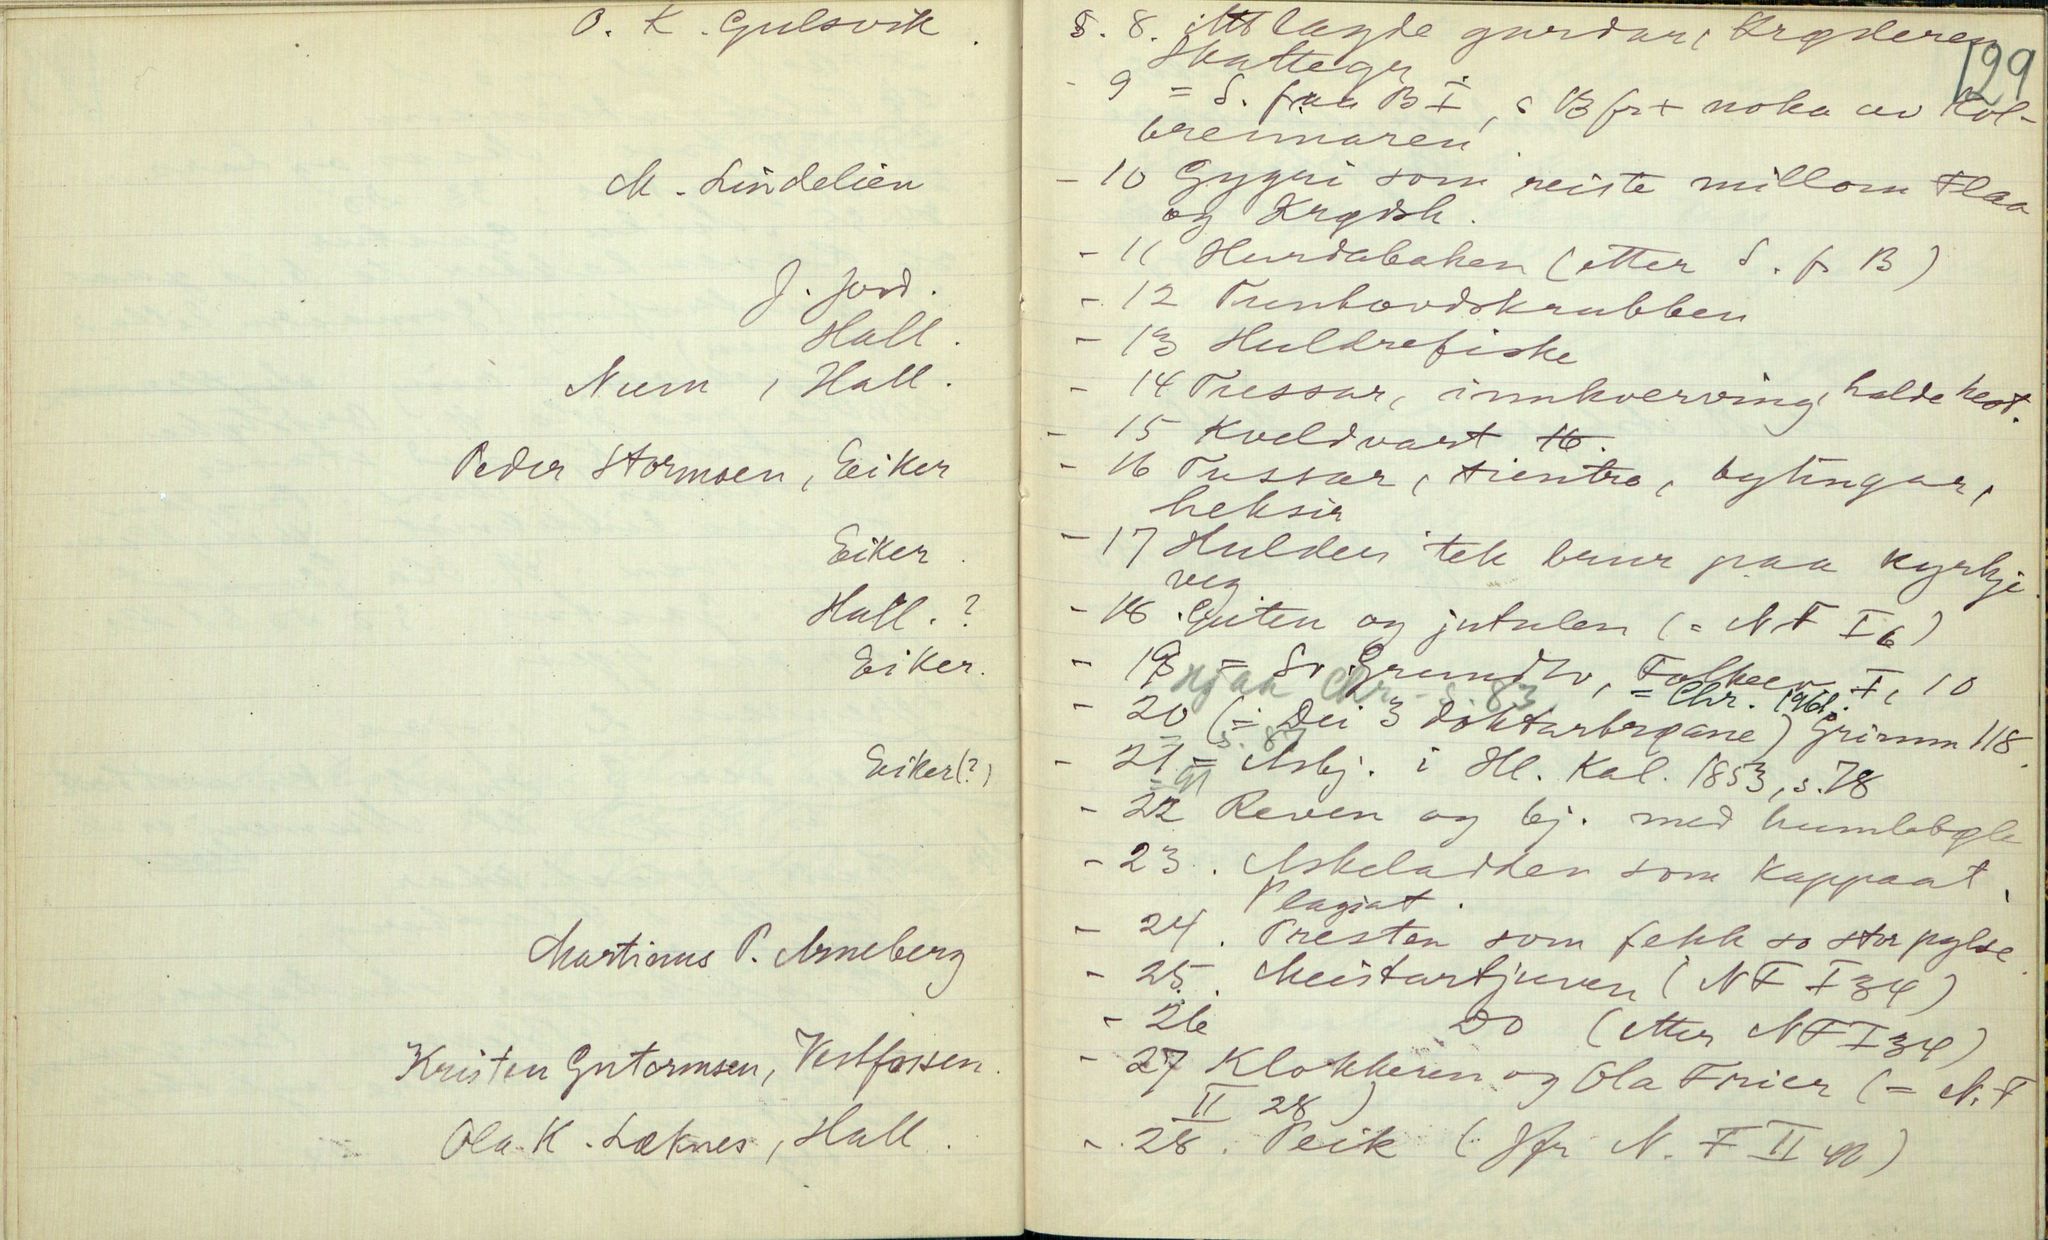 O. K. Gulsvik.
M. Lindelien
J. Jord.
Hall.
Num, Hall.
Peder Stormoen, Eiker
Eiker.
Hall.?
Eiker.
Eiker(?)
Martinus P. Arneberg
Kristen Gutormsen, Vestfossen.
Ola K. Læknes, Hall.
129
S. 8. lagde gardar, Krøderen
Skattegr
- 9 = S. fraa B I, s 13 fr + noka av Kol-
brennaren
- 10 Gygri som reiste millom Flaa
og Krødsh.
- 11 Hurdabaken (etter S. fr B)
- 12 Trenhovdskrubben
- 13 Huldrefiske
- 14 Tussar, innkverving, halde hest.
- 15 Kveldvart 16.
- 16 Tussar, bytingar,
heksir
- 17 Hulder tek brur paa kyrkje
veg.
- 18. Guten og jutulen (= NF I 6)
- 19 = Sv. Grundtv, Folkeev. I, 10
Hjaa Chr. s. 83
= Chr. 1961.
- 20 (= Dei 3 doktarbrøane) Grimm 118.
= s. 87
- 21 = Asbj. i Ill. Kal. 1853, s. 78
= 91
- 22 Reven og bj. med humlebøle
- 23. Askeladden som kappaat,
Plagiat.
- 24. Presten som fekk so stor pylse.
- 25. Meistartjuven (NF I 34)
- 26 Do (etter NF I 34)
- 27 Klokkeren og Ola Frier (= N. F
II 28)
- 28. Peik (Jfr N. F II)